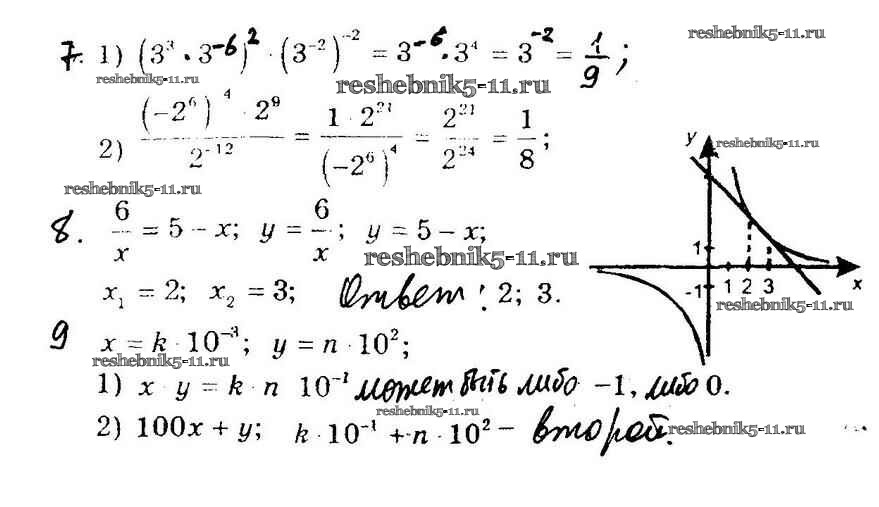 reshebnik5-11.ru
7. 1) (3³ · 3⁻⁶)² · (3⁻²)⁻² = 3⁻⁶ · 3⁴ = 3⁻² = 1/9;
reshebnik5-11.ru reshebnik5-11.ru
2) (−2⁶)⁴ · 2⁹ / 2⁻¹² = 1 · 2²¹ / (−2⁶)⁴ = 2²¹ / 2²⁴ = 1/8;
reshebnik5-11.ru
reshebnik5-11.ru
8. 6/x = 5 − x; y = 6/x; y = 5 − x;
reshebnik5-11.ru
x₁ = 2; x₂ = 3; Ответ: 2; 3.
y
1
-1
1 2 3
x
reshebnik5-11.ru
9 x = k · 10⁻³; y = n · 10²;
reshebnik5-11.ru
1) x · y = k · n 10⁻¹ может быть либо −1, либо 0.
reshebnik5-11.ru
2) 100x + y; k · 10⁻¹ + n · 10² − второй.
reshebnik5-11.ru